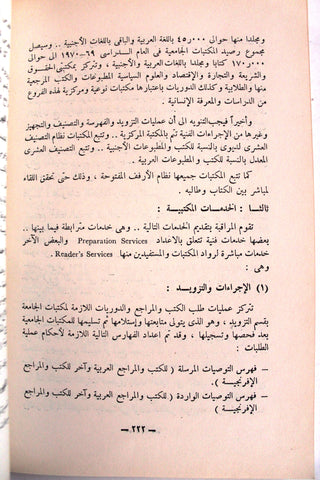 ومجلدا منها حوالى ٤٥٫٠٠٠ باللغة العربية والباقى باللغات الأجنبية .. وسيصل
مجموع رصيد المكتبات الجامعية فى العام الدراسى ٦٩ - ١٩٧٠ الى حوالى
١٧٠٫٠٠٠ كتابا ومجلدا باللغات العربية والأجنبية ، وتركز بمكتبتى الحقوق
والشريعة والتجارة والإقتصاد والعلوم السياسية المطبوعات والكتب المرجع
منها والطلابية وكذلك الدوريات باعتبارها مكتبات نوعية ومركزية لهذه الفروع
من الدراسات والمعرفة الإنسانية .
وأخيراً فيجب التنويه الى أن عمليات التزويد والفهرسة والتصنيف والتجهيز
وغيرها من الإجراءات الفنية تتم بالمكتبة المركزية .. وتتبع المكتبات نظام التصنيف
العشرى لديوى بالنسبة للكتب والمطبوعات الأجنبية .. وتتبع التصنيف العشرى
المعدل بالنسبة للكتب والمطبوعات العربية .
كما تتبع المكتبات جميعها نظام الأرفف المفتوحة ، وذلك حتى تحقق اللقاء
لمباشر بين الكتاب وطالبه .
ثالثـا : الخدمـات المكتبيـة :
تقوم المراقبة بتقديم الخدمات التالية .. وهى خدمات مترابطة فيما بينها ..
بعضها خدمات فنية تتعلق بالاعداد Preparation Services والبعض الآخر
خدمات مباشرة لرواد المكتبات والمستفيدين منها Reader's Services .
وهى :
(١) الإجراءات والتزويـد :
تتركز عمليات طلب الكتب والمراجع والدوريات اللازمة لمكتبات الجامعة
بقسم التزويد ، وهو الذى يتولى متابعتها وإستلامها ثم تسليمها للمكتبات الجامعية
بعد فحصها وتسجيلها ، وقد تم اعداد الفهارس التالية اللازمة لأحكام عملية
الطلبات :
— فهرس التوصيات المرسلة ( للكتب والمراجع العربية وآخر للكتب والمراجع
الإفرنجية ) .
— فهرس التوصيات الواردة ( للكتب والمراجع العربية وآخر للكتب والمراجع
الإفرنجية )
— ٢٢٢ —